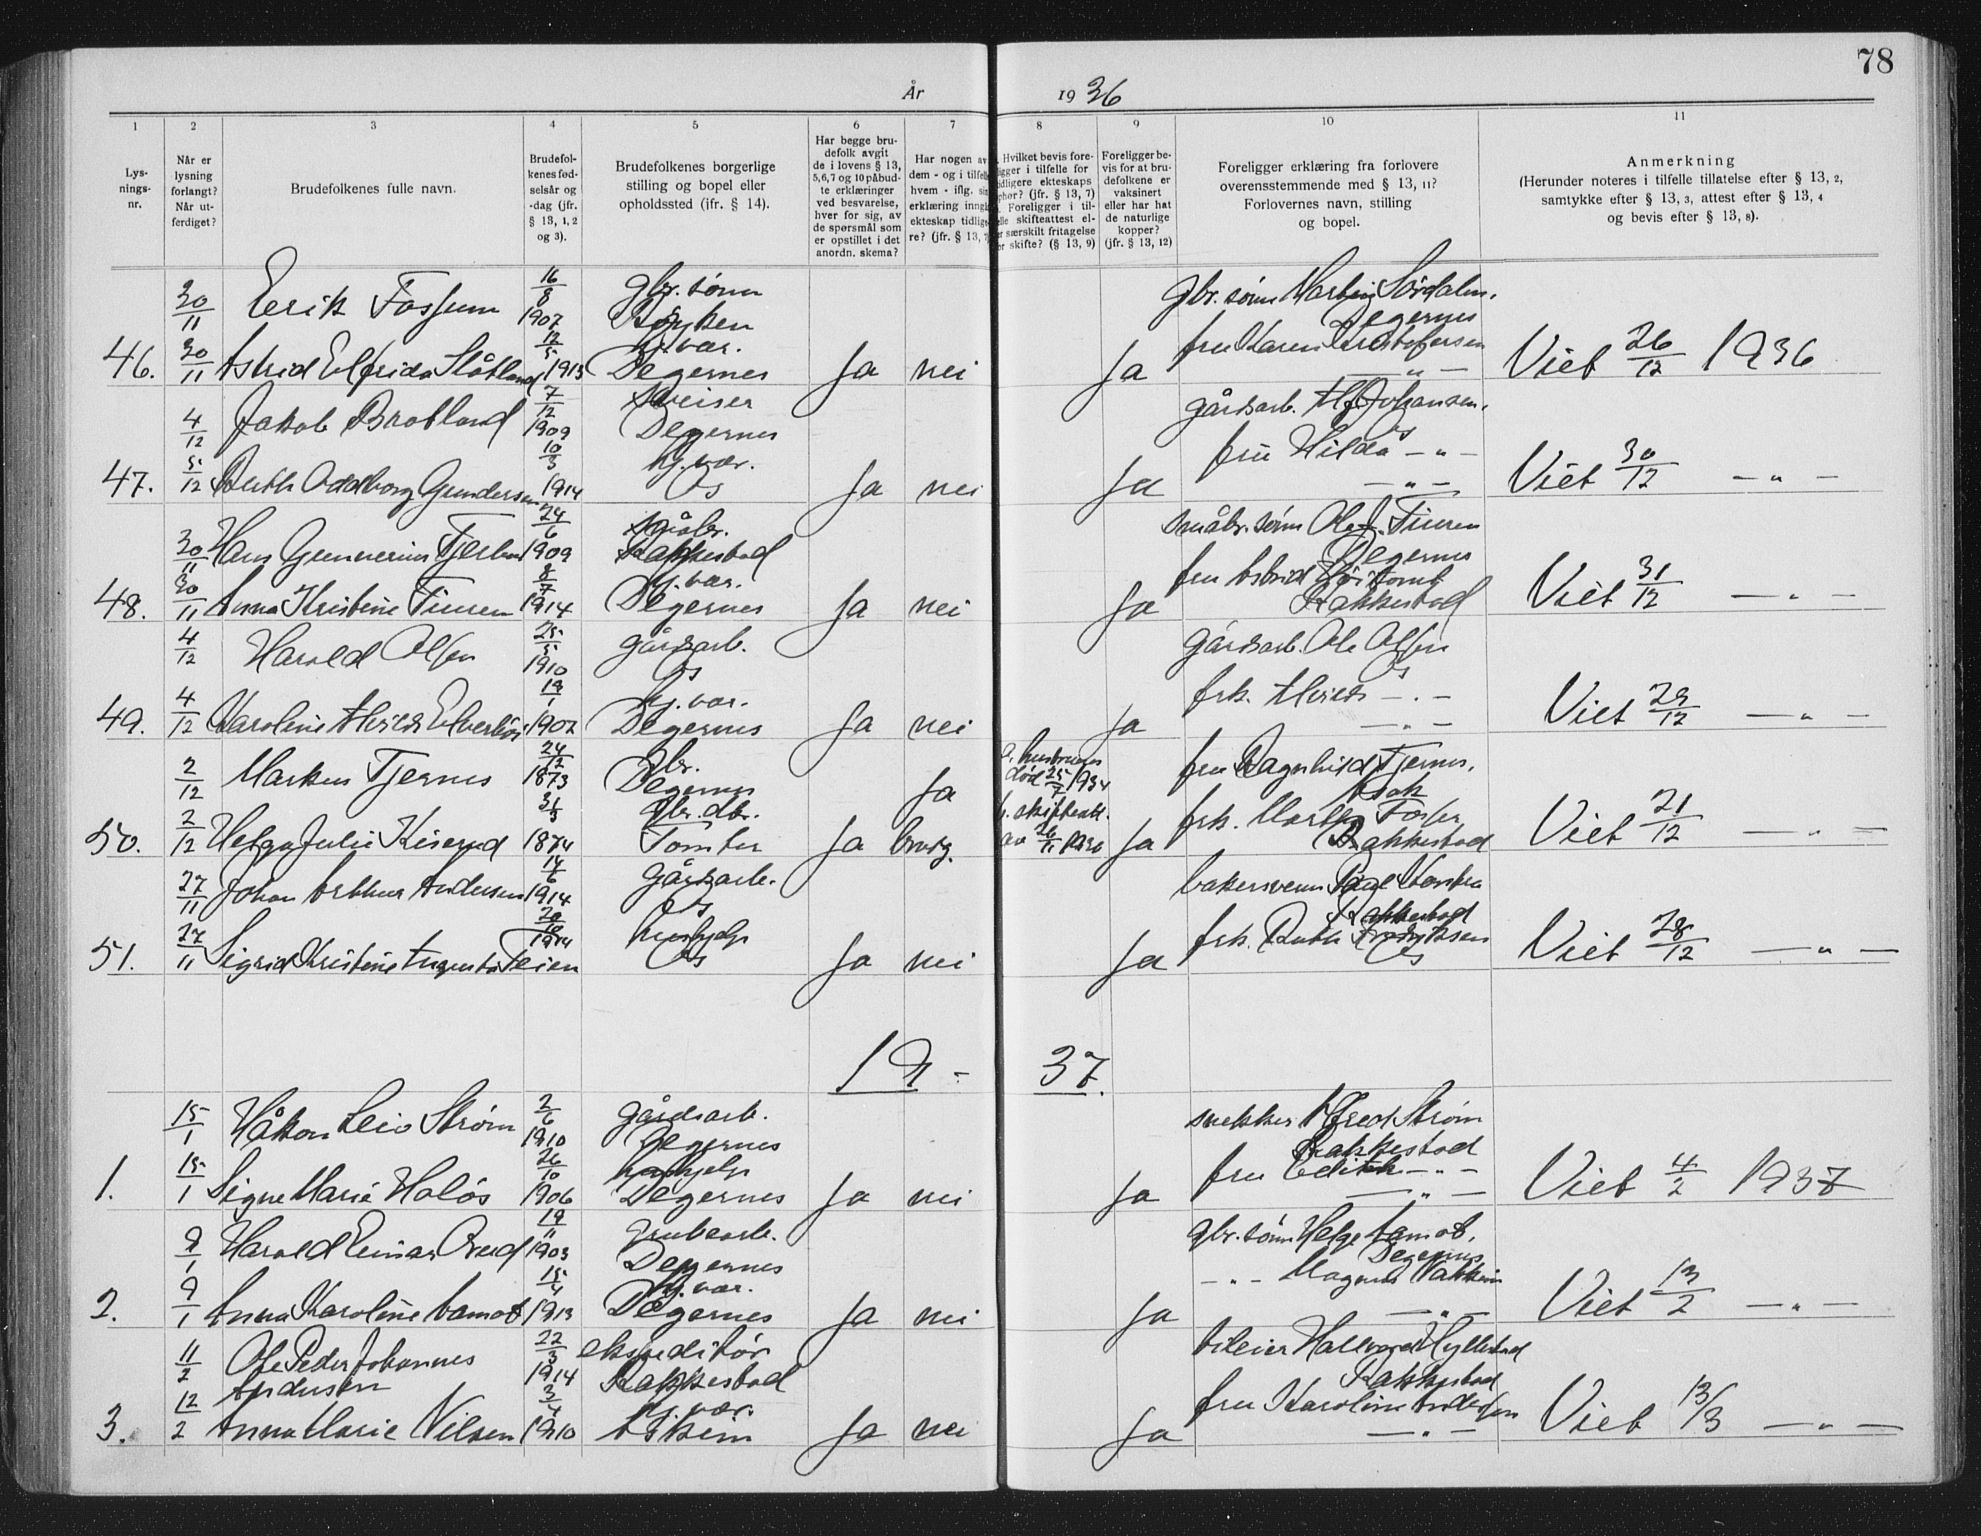 78
År 1936
1 2 3 4 5 6 7 8 9 10 11
Lys-
nings-
nr.
Når er
lysning
forlangt?
Når ut-
ferdiget?
Brudefolkenes fulle navn.
Brudefol-
kenes fød-
selsår og
-dag (jfr.
§ 13, 1, 2
og 3).
Brudefolkenes borgerlige
stilling og bopel eller
opholdssted (ifr. § 14).
Har begge bru-
defolk avgit
de i lovens § 13,
5,6,7 og 10 påbud-
te erklæringer
ved besvarelse,
hver for sig, av
de spørsmål som
er opstillet i det
anordn. skema?
Har nogen av
dem - og i tilfelle
hvem - iflg. sin
erklæring inngå
ekteskap tidlige
re? (jfr. § 13, 7
Hvilket bevis fore-
ligger i tilfelle for
tidligere ekteskaps
ophør? (jfr. § 13, 7)
Foreligger i til-
elle skifteattest el-
er særskilt fritagelse
or skifte? (§ 13, 9)
Foreligger be-
vis for at bru-
defolkene er
vaksinert
eller har hat
de naturlige
kopper?
(jfr. § 13, 12)
Foreligger erklæring fra forlovere
overensstemmende med § 13, 11?
Forlovernes navn, stilling
og bopel.
Anmerkning
(Herunder noteres i tilfelle tillatelse efter § 13, 2,
samtykke efter § 13, 3, attest efter § 13, 4
og bevis efter § 13, 8).
30/11 Erik Fossum 16/8 1907 gbr. sønn gbr. sønn Sørdalen.
Degernes
46. 30/11 Astrid Elfrida 12/5 1913 hj. vær. Degernes Ja nei Ja fru Karen Kristofersen Viet 26/12 1936
4/12 Jakob Bratland 7/12 1909 Sveiser Degernes gårdsarb. Alf Johansen.
Os
47. 5/12 Ruth Oddborg Gundersen 10/3 1914 hj. vær. Os Ja nei Ja fru Hilda - " - Viet 30/12 - " -
30/11 Hans Gunnerius 24/6 1909 Rakkestad småbr. sønn Ole J. Tiuren
Degernes
48. 30/11 Anna Kristine Tiuren 8/7 1914 hj. vær. Degernes Ja nei Ja fru Astrid Rakkestad Viet 31/12 - " -
4/12 Harald Olsen 25/5 1910 gårdsarb. Os gårdsarb. Ole Olsen
Os
49. 4/12 Karoline Alvilde 19/1 1902 hj. vær. Degernes Ja nei Ja frk. Alvilde - " - Viet 29/12 - " -
2/12 Markus Tjernes 24/12 1873 gbr. Degernes Ja hustruen død 25/7 1934 fru Ragnhild Tjernes.
50. 2/12 Helga Julie Kiserud 31/3 1874 gbr. dtr. Tomter Ja brudg. skifteatt. av 26/11 1936 Ja frk. Rakkestad Viet 21/12 - " -
27/11 Johan Arthur Andersen 14/6 1914 gårdsarb. Os bakersvenn
Rakkestad
51. 27/11 Sigrid Kristine Augusta Teien 1914 hushjelp Os Ja nei Ja frk. Ruth Os Viet 28/12 - " -
19 - 37.
15/1 Håkon Leiv Strøm 2/6 1910 gårdsarb. Degernes snekker Alfred Strøm
Rakkestad
1. 15/1 Signe Marie Holøs 26/10 1906 hushjelp Degernes Ja nei Ja fru Edith - " - Viet 4/2 1937
9/1 Harald Einar 19/11 1903 grubearb. Degernes gbr. sønn Helge Aamot.
Degernes
2. 9/1 Anna Karoline Aamot 15/4 1913 hj. vær. Degernes Ja nei Ja - " - Magnus Viet 13/2 - " -
11/2 Ole Peder Johannes
Andersen 22/3 1914 ekspeditør Rakkestad Rakkestad
3. 12/2 Anna Marie Nilsen 3/4 1910 hj. vær. Askim Ja nei Ja fru Karoline Andersen Viet 13/3 - " -